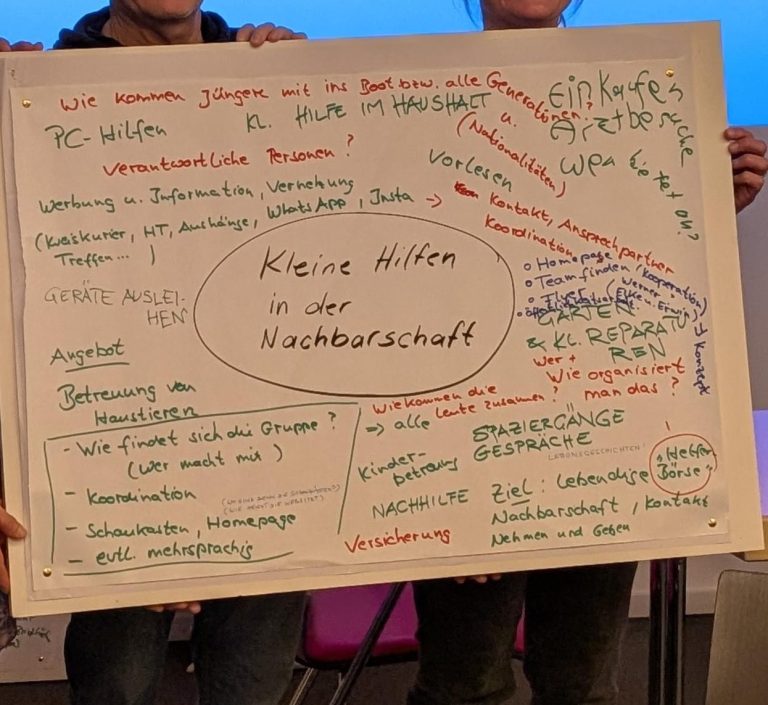 Wie kommen Jüngere mit ins Boot bzw. alle Generationen?
u.
(Nationalitäten)
PC-Hilfen
KL. HILFE IM HAUSHALT
Einkaufen
Arztbesuche
Verantwortliche Personen?
Vorlesen
Werbung u. Information, Vernetzung
(Kreiskurier, HT, Aushänge, WhatsApp, Insta →
Treffen... )
Kontakt, Ansprechpartner
Koordination
o Homepage
o Teamfinden (Kooperation)
o Flyer
Werner
GERÄTE AUSLEI-
HEN
Kleine Hilfen
in der
Nachbarschaft
GARTEN
& KL. REPARATU
REN
→ Konzept
Angebot
Betreuung von
Haustieren
wer +
Wie organisiert
man das?
Wie kommen die
Leute zusammen?
⇒ alle
- Wie findet sich die Gruppe?
(Wer macht mit)
- Koordination
- Schaukasten, Homepage
- evtl. mehrsprachig
Kinder-
betreuung
SPAZIERGÄNGE
GESPRÄCHE
LEBENSGESCHICHTEN!
"Helfer
Börse"
NACHHILFE
Ziel: Lebendige
Nachbarschaft, Kontakt
Nehmen und Geben
Versicherung